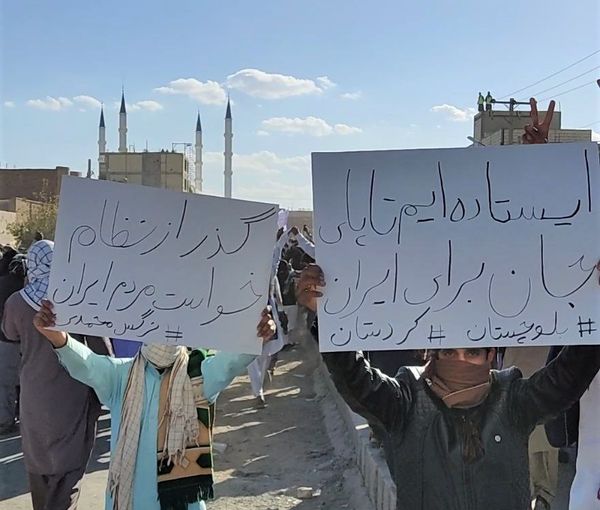 ایستاده ایم تا پای
جان برای ایران
# بلوچستان # کردستان
گذر از نظام
خواست مردم ایران
# نرگس محمدی